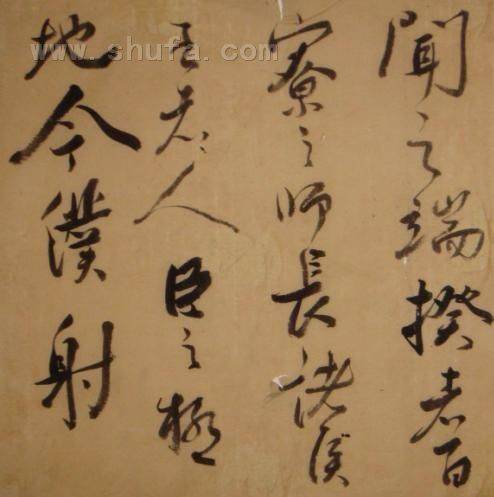 聞之端揆者百
寮之師長諸侯
王者人臣之極
地今僕射
www.shufa.com